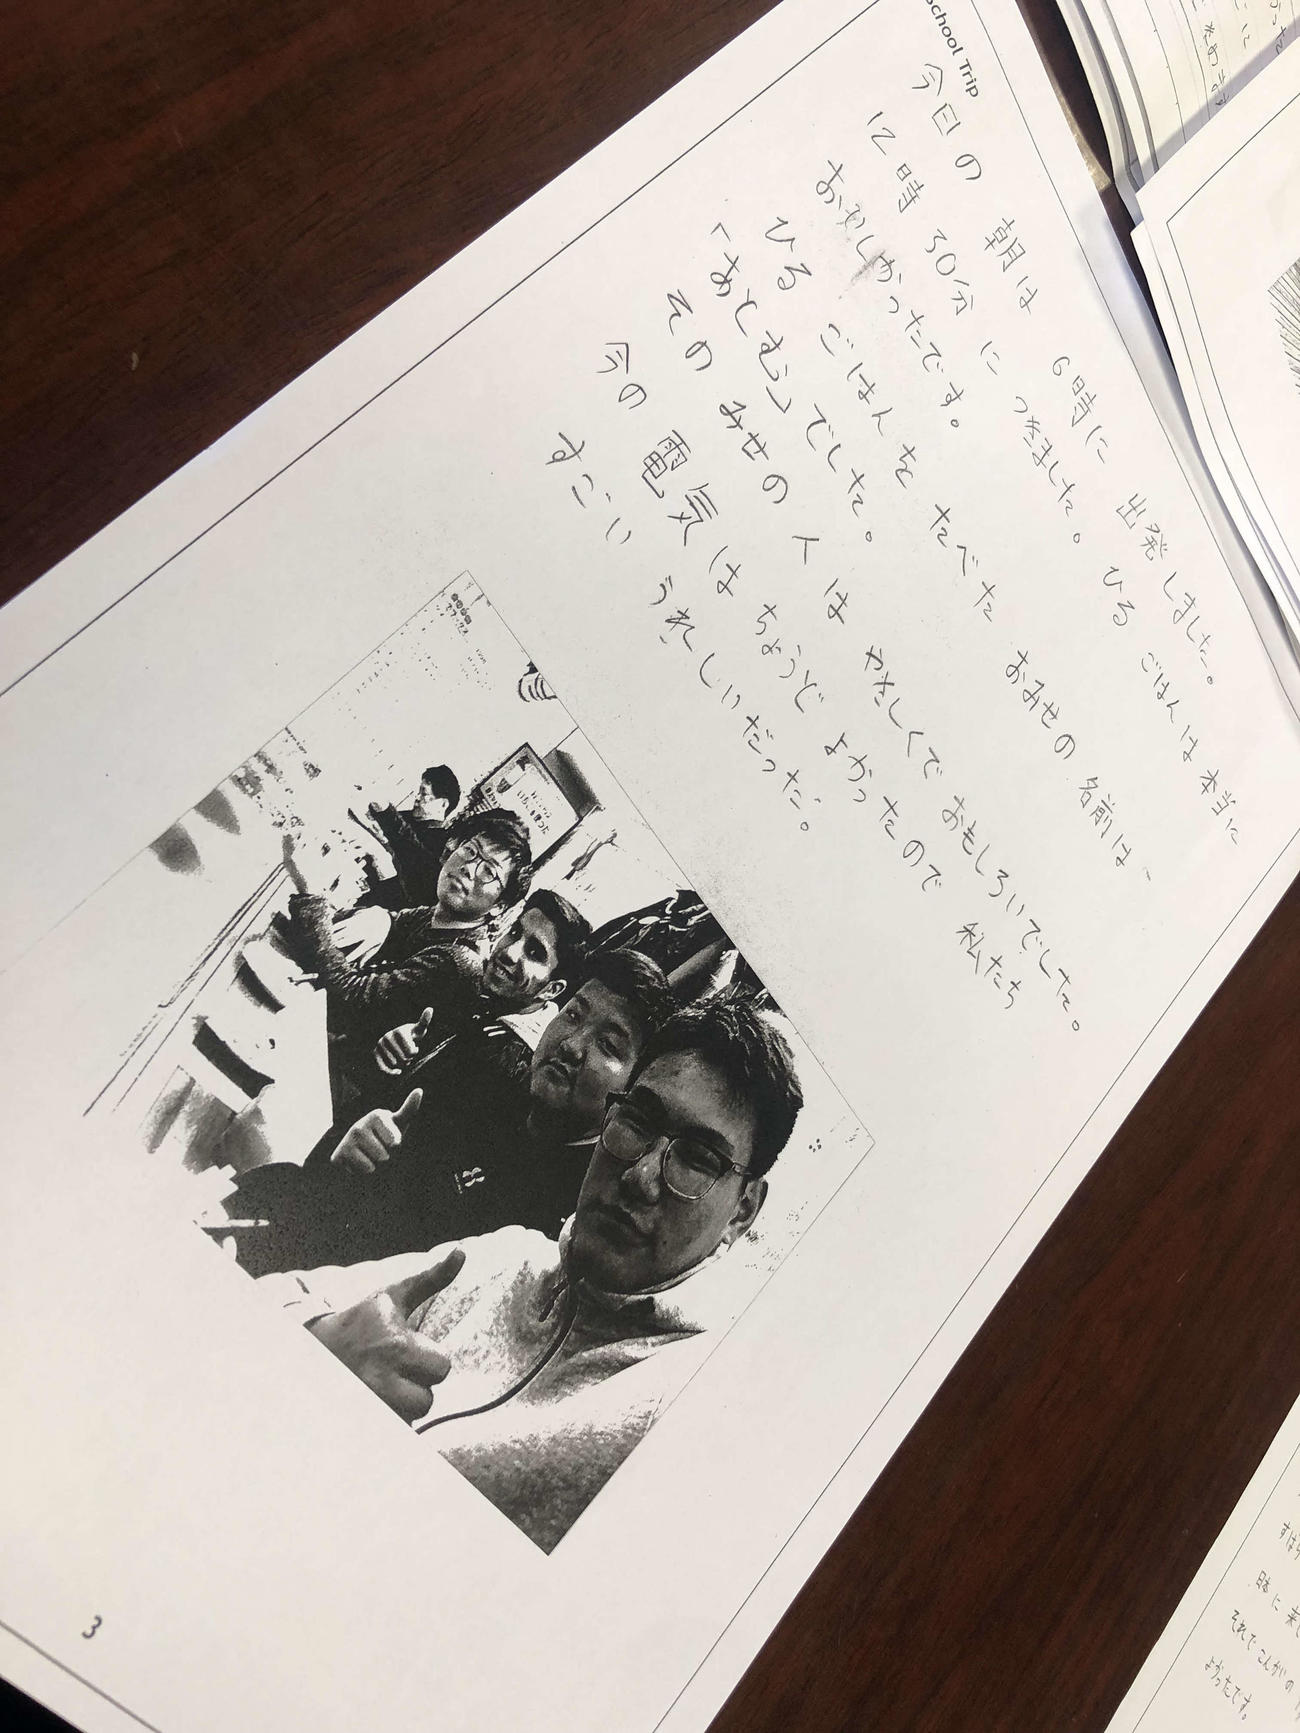 School Trip
今日の 朝は 6時に 出発しました。
12時 30分 に つきました。 ひる ごはんは 本当に
おいしかったです。
ひる ごはん を たべた おみせの 名前は、
「あしむ」でした。
その みせの 人は やさしくで おもしろいでした。
今の 電気は ちょうど よかったので 私たち
すごい うれしいだった。
3
日本に 来
それで こんかいの
よかったです。